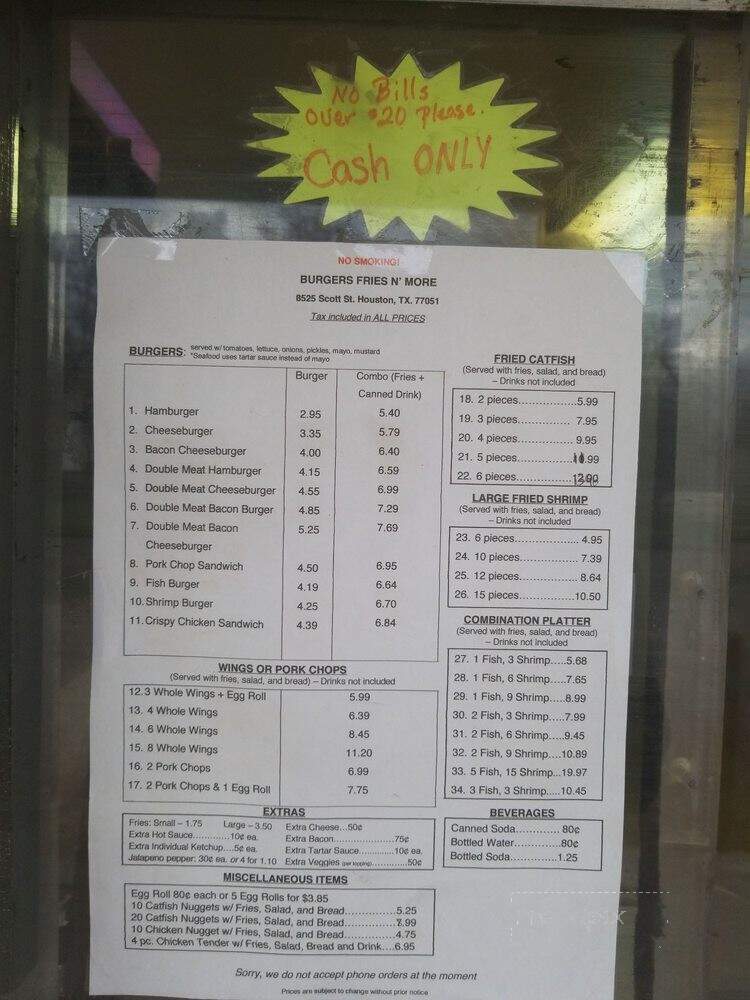 No Bills
over $20 Please.
Cash ONLY
NO SMOKING!
BURGERS FRIES N' MORE
8525 Scott St. Houston, TX. 77051
Tax included in ALL PRICES
BURGERS: served w/ tomatoes, lettuce, onions, pickles, mayo, mustard
*Seafood uses tartar sauce instead of mayo
Burger Combo (Fries +
Canned Drink)
1. Hamburger 2.95 5.40
2. Cheeseburger 3.35 5.79
3. Bacon Cheeseburger 4.00 6.40
4. Double Meat Hamburger 4.15 6.59
5. Double Meat Cheeseburger 4.55 6.99
6. Double Meat Bacon Burger 4.85 7.29
7. Double Meat Bacon 5.25 7.69
Cheeseburger
8. Pork Chop Sandwich 4.50 6.95
9. Fish Burger 4.19 6.64
10. Shrimp Burger 4.25 6.70
11. Crispy Chicken Sandwich 4.39 6.84
WINGS OR PORK CHOPS
(Served with fries, salad, and bread) – Drinks not included
12. 3 Whole Wings + Egg Roll 5.99
13. 4 Whole Wings 6.39
14. 6 Whole Wings 8.45
15. 8 Whole Wings 11.20
16. 2 Pork Chops 6.99
17. 2 Pork Chops & 1 Egg Roll 7.75
EXTRAS
Fries: Small – 1.75 Large – 3.50 Extra Cheese...50¢
Extra Hot Sauce............10¢ ea. Extra Bacon......................75¢
Extra Individual Ketchup....5¢ ea. Extra Tartar Sauce............10¢ ea.
Jalapeno pepper: 30¢ ea. or 4 for 1.10 Extra Veggies (per topping)..............50¢
MISCELLANEOUS ITEMS
Egg Roll 80¢ each or 5 Egg Rolls for $3.85
10 Catfish Nuggets w/ Fries, Salad, and Bread...............5.25
20 Catfish Nuggets w/ Fries, Salad, and Bread...............7.99
10 Chicken Nugget w/ Fries, Salad, and Bread...............4.75
4 pc. Chicken Tender w/ Fries, Salad, Bread and Drink....6.95
FRIED CATFISH
(Served with fries, salad, and bread)
– Drinks not included
18. 2 pieces.................5.99
19. 3 pieces................ 7.95
20. 4 pieces................ 9.95
21. 5 pieces................ .99
22. 6 pieces................
LARGE FRIED SHRIMP
(Served with fries, salad, and bread)
– Drinks not included
23. 6 pieces................ 4.95
24. 10 pieces................ 7.39
25. 12 pieces................ 8.64
26. 15 pieces...............10.50
COMBINATION PLATTER
(Served with fries, salad, and bread)
– Drinks not included
27. 1 Fish, 3 Shrimp.....5.68
28. 1 Fish, 6 Shrimp.....7.65
29. 1 Fish, 9 Shrimp.....8.99
30. 2 Fish, 3 Shrimp.....7.99
31. 2 Fish, 6 Shrimp.....9.45
32. 2 Fish, 9 Shrimp....10.89
33. 5 Fish, 15 Shrimp...19.97
34. 3 Fish, 3 Shrimp.....10.45
BEVERAGES
Canned Soda............ 80¢
Bottled Water............80¢
Bottled Soda.............1.25
Sorry, we do not accept phone orders at the moment
Prices are subject to change without prior notice